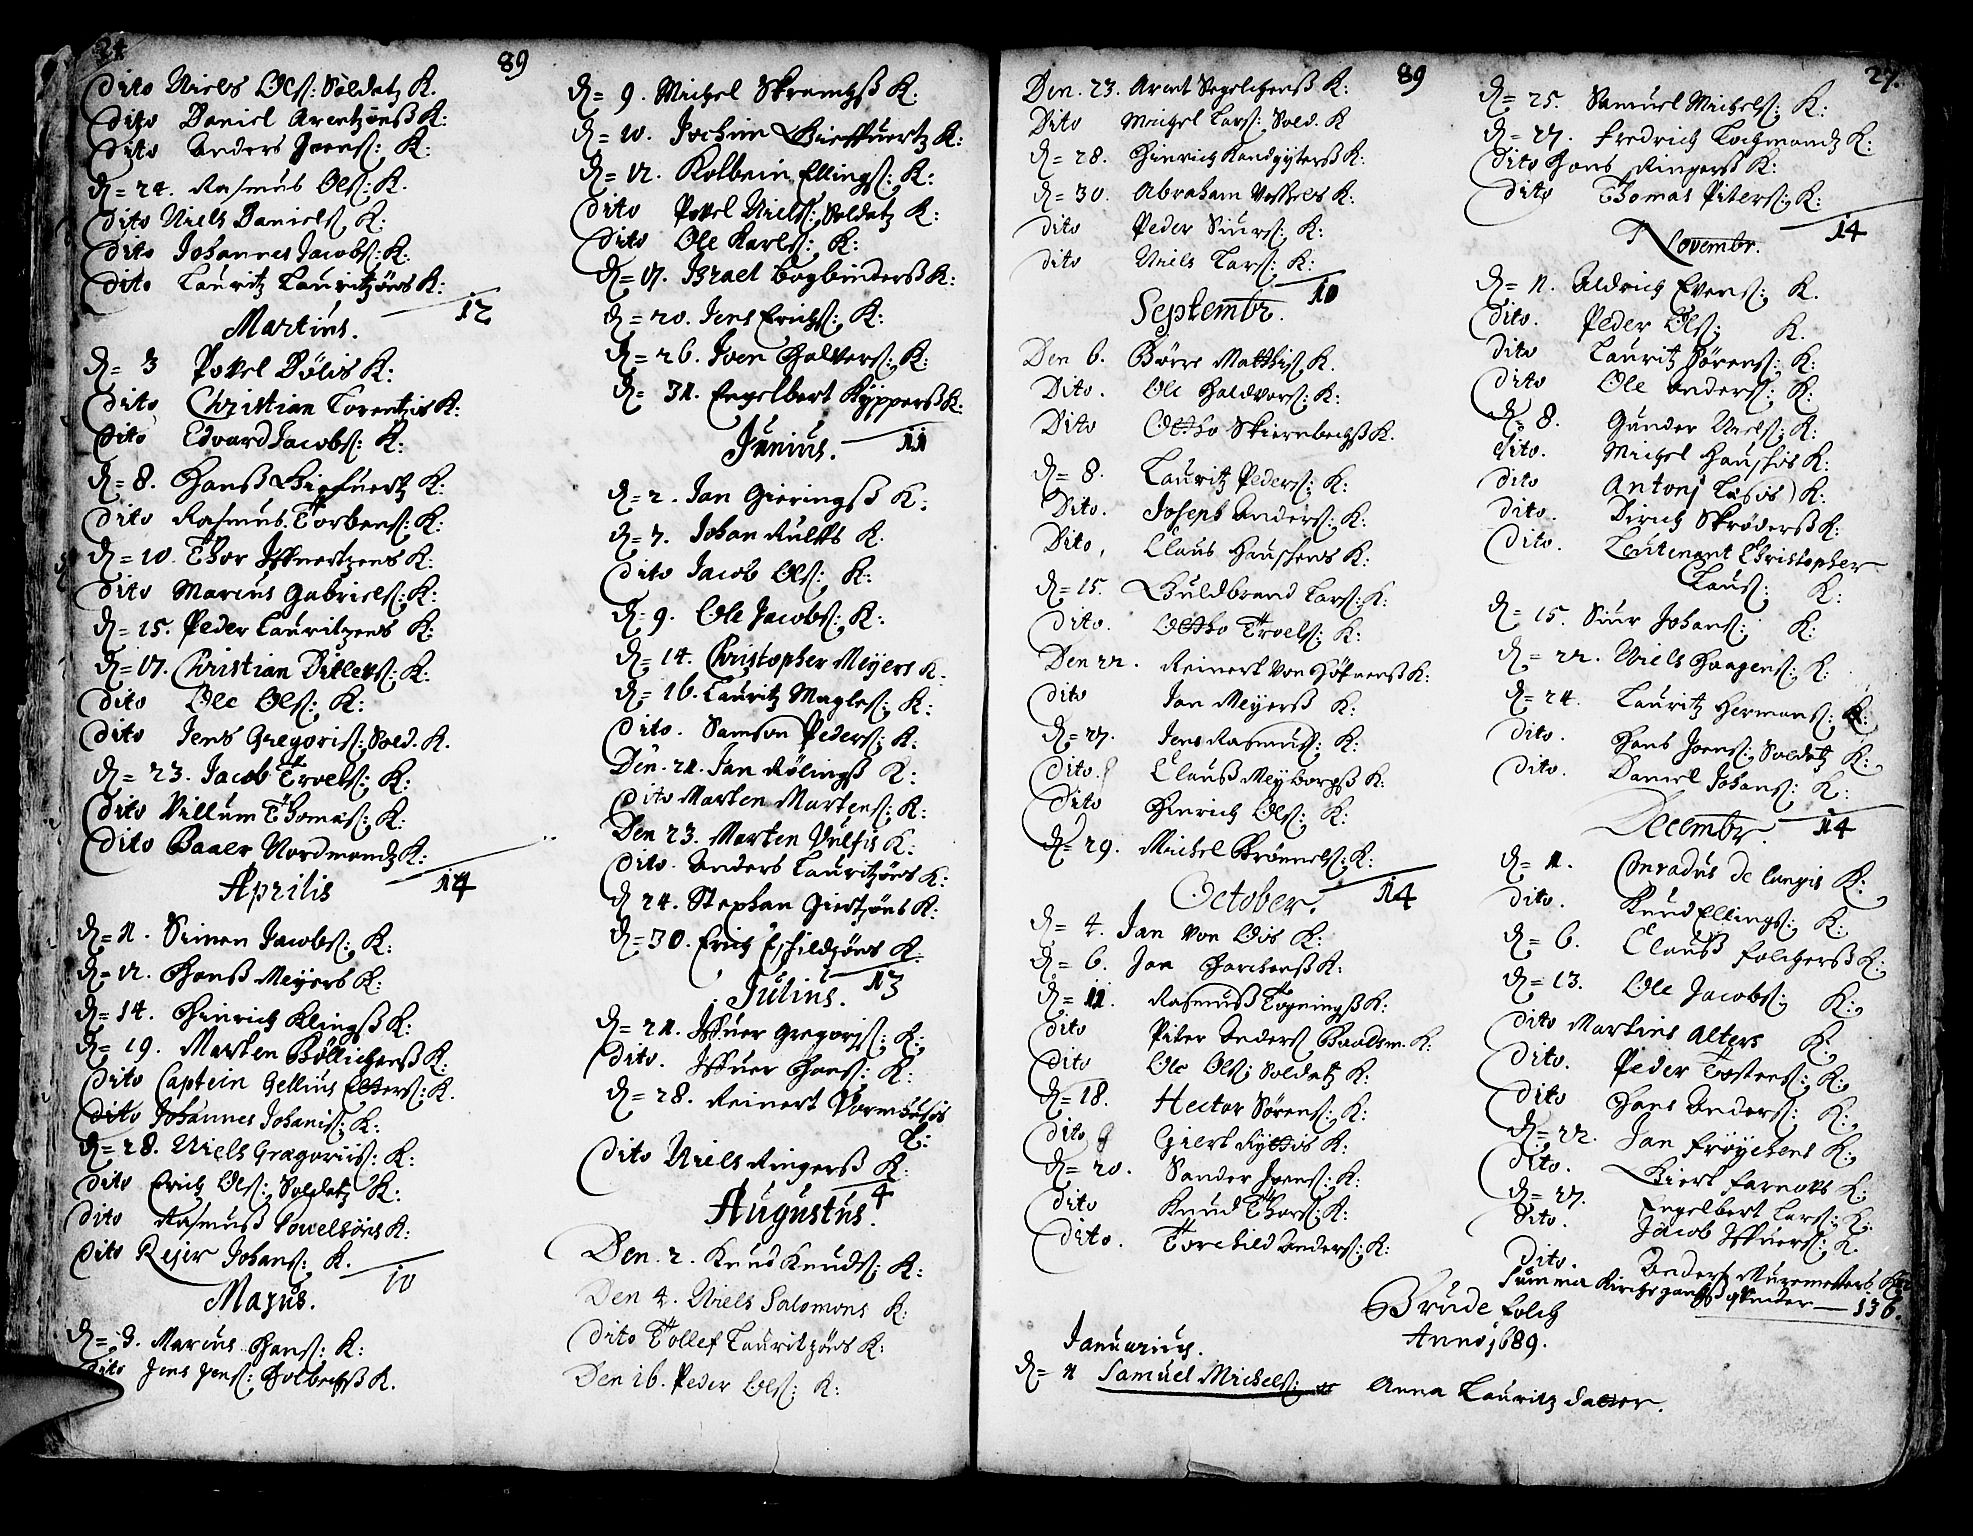 24
89
Dito Niels Ols: Soldatz K.
Dito Daniel Arentzönß K:
Dito Anders Joens: K:
D= 24. Rasmus Ols: K.
Dito Niels Daniels: K:
Dito Johannes Jacobs: K:
Dito Lauritz Lauritzöns K:
12
Martius.
D= 3 Povel Bölös K:
Dito Christian Lorentzis K:
Dito Edvard Jacobs: K:
D= 8. Hanß K:
Dito Rasmus Torbens: K:
D= 10. Thor K:
Dito Marcus Gabriels: K:
D= 15. Peder Lauritzens K:
D= 17. Christian Ditlefs: K:
Dito Ole Ols: K:
Dito Jens Gregoris: Sold. K.
D= 23. Jacob Troels: K:
Dito Villum Thomas: K:
Dito Baaer Nordmandz K:
14
Aprilis
D= 11. Simen Jacobs: K:
D= 12. Hanß Meyers K:
D= 14. Hinrich Klingß K:
D= 19. Marten Böllicherß K:
Dito Captein Gellius Elters: K.
Dito Johannes Johanis: K:
D= 28. Niels Gregoriis: K:
Dito Erich Ols: Soldatz K:
Dito Rasmuß Powelsöns K:
Dito Rejer Johans: K.
10
Majus.
D= 3. Marcus Hans: K:
Dito Jens Jens: Holbechß K.
D= 9. Michel K:
D= 10. Jochim K:
D= 12. Kolbein Ellings: K:
Dito Povel Niels: Soldatz K:
Dito Ole Karls: K:
D= 17. Israel Bogbinderß K:
D= 20. Jens Erichs: K:
D= 26. Iven Halvers: K:
D= 31. Engelbert Kypperß K:
11
Junius.
D= 2. Jan Gieringß K:
D= 7. Johan Rulfs K.
Dito Jacob Ols: K:
D= 9. Ole Jacobs: K:
D= 14. Christopher Meyers K.
D= 16. Lauritz Magles: K:
Dito. Samson Peders: K:
Den. 21. Jan Rölingß K:
Dito Marten Martens: K:
Den 23. Marten Vulfis K:
Dito. Anders Lauritzöns K:
D 24. Stephan Giertzöns K:
D= 30. Erich Eschildzöns K.
13
Julius.
D= 21. Iffuer Gregoris: K:
Dito. Iffuer Hans: K:
D= 28. Reinert
K:
Dito Niels Ringerß K:
4
Augustus.
Den. 2. Knud Knuds: K:
Den 4. Niels Salomons K:
Dito Tollef Lauritzöns K:
Den 16. Peder Ols: K:
89
27.
Den. 23. Arent Segelchenß K:
Dito Michel Lars: Sold. K
D= 28. Hinrich Kandgyterß K:
D= 30. Abraham Vessels K:
Dito Peder Siurs: K:
Dito Niels Lars: K:
10
Septembr.
Den 6. Börre Matthis K.
Dito. Ole Haldvors: K:
Dito Ottho Skiernbechß K.
D= 8. Lauritz Peders: K:
Dito. Joseph Anders: K:
Dito. Claus Hruschens K:
D= 15. Guldbrand Lars: K:
Dito. Ottho Troels: K:
Den 22. Reinert von K:
Dito Jan Meyerß K:
D= 27. Jens Rasmus: K:
Dito. Clauß Meyborgß K:
Dito Hinrich Ols: K:
D= 29. Michel Brönnels: K:
14
October.
D= 4. Jan von Ois K:
D= 6. Jan Harchenß K:
D= 11. Rasmuß Tögningß K:
Dito Piter Anders: Baadsm. K:
Dito Ole Ols: Soldatz K:
D= 18. Hector Sörens: K:
Dito Giert Ryttis K:
D= 20. Sander Joens: K:
Dito Knud Thors: K:
Dito. Torchild Anders: K:
D= 25. Samuel Michels: K:
D= 27. Fredrich Lochmandz K:
Dito Hans Ringerß K:
Dito Thomas Piters: K:
14
Novembr.
D= 11. Aldrich Evens: K.
Dito. Peder Ols: K.
Dito Lauritz Sörens: K:
Dito Ole Anders: K:
D= 8. Gunder Niels: K:
Dito. Michel Hanschis K:
Dito Antonj K:
Dito. Dirich Skröderß K:
Dito. Leutenant Christopher
Claus: K:
D= 15. Siur Johans: K:
D= 22. Niels Haagens: K:
D= 24. Lauritz Hermans: K:
Dito. Hans Joens: Soldatz K:
Dito. Daniel Johans: K:
14
Decembr.
D= 11. Conradus de Langis K:
Dito. Knud Ellings: K:
D= 6. Clauß Folcherß K:
D= 13. Ole Jacobs: K:
Dito Martins Alters K:
Dito. Peder Tostens: K:
Dito Hans Anders: K:
D= 22. Jan Fröychens K:
Dito. Giert K:
D= 27. Engelbert Lars: K:
Dito. Jacob Iffuers: K.
Dito. Anders Muremesters K:
Summa Kirchegangß qvinder — 136.
Brude folch
Anno 1689.
Januarius.
D= 11 Samuel Michels: Anna Lauritz datter.